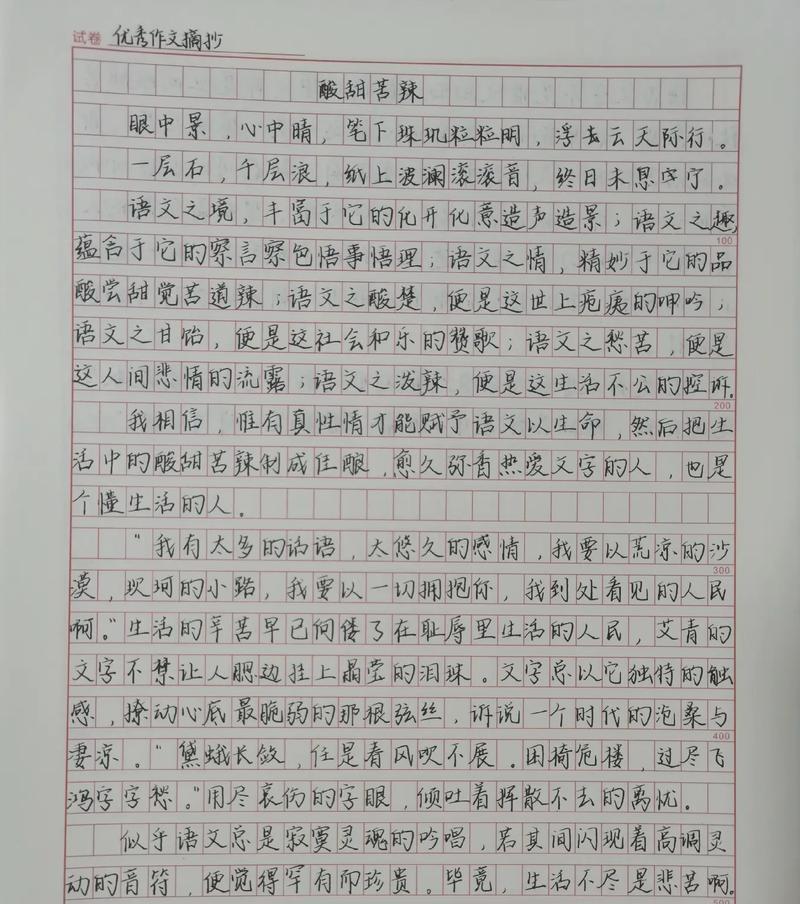 试卷 优秀作文摘抄
酸甜苦辣
眼中景，心中晴，笔下珠玑粒粒明，浮去云天际行。
一层石，千层浪，纸上波澜滚滚音，终日未息字宁。
语文之境，丰富于它的化开化意造声造景；语文之趣，
100
蕴含于它的察言察色悟事悟理；语文之情，精妙于它的品
酸尝甜觉苦道辣；语文之酸楚，便是这世上疮痍的呻吟；
语文之甘饴，便是这社会和乐的赞歌；语文之愁苦，便是
这人间悲情的流露；语文之泼辣，便是这生活不公的控诉。
200
我相信，惟有真性情才能赋予语文以生命，然后把生
活中的酸甜苦辣制成佳酿，愈久弥香热爱文字的人，也是
个懂生活的人。
“我有太多的话语，太悠久的感情，我要以荒凉的沙
300
漠，坎坷的小路，我要以一切拥抱你，我到处看见的人民
啊。”生活的辛苦早已佝偻了在耻辱里生活的人民，艾青的
文字不禁让人腮边挂上晶莹的泪珠。文字总以它独特的触
感，撩动心底最脆弱的那根弦丝，诉说一个时代的沧桑与
400
凄凉。“黛蛾长敛，任是春风吹不展。困倚危楼，过尽飞
鸿字字愁。”用尽哀伤的字眼，倾吐着挥散不去的离忧。
似乎语文总是寂寞灵魂的吟唱，若其间闪现着高调灵
动的音符，便觉得罕有而珍贵。毕竟，生活不尽是悲苦啊。
500